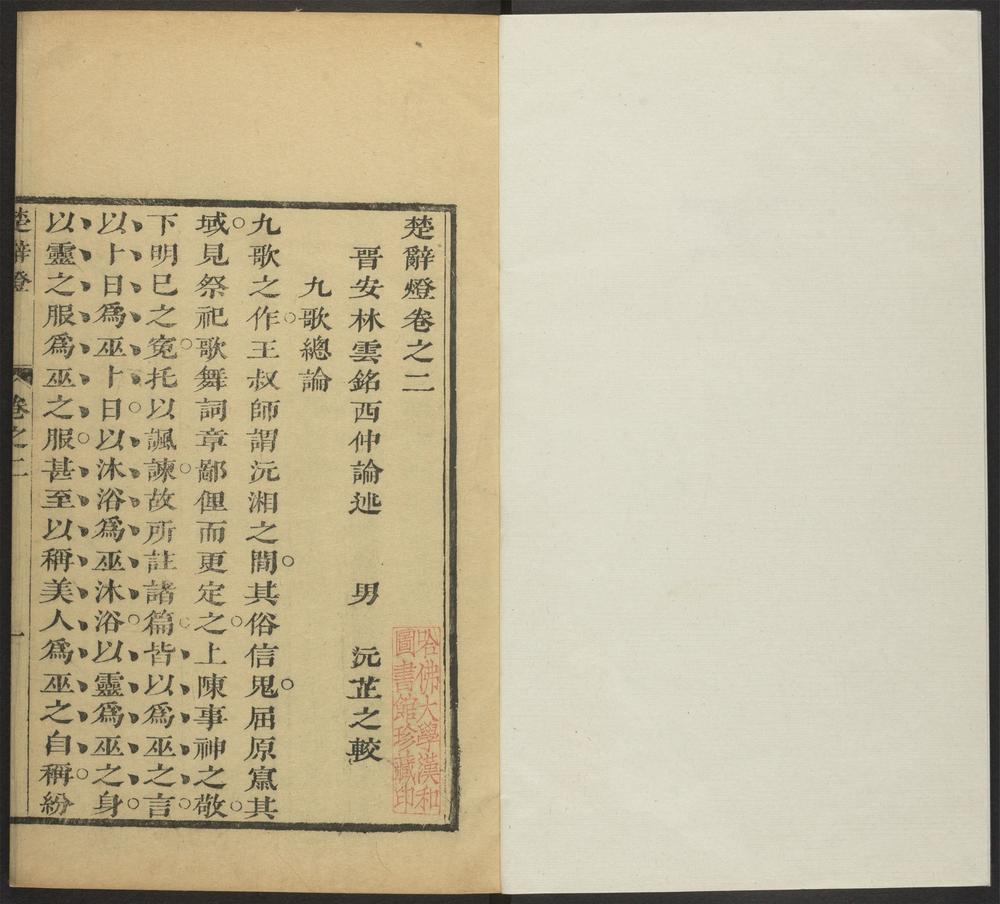 楚辭燈卷之二
晋安林雲銘西仲論述　男　沅芷之較
九歌總論
九歌之作。王叔師謂沅湘之間。其俗信鬼。屈原竄其。
域。見祭祀歌舞詞章鄙俚而更定之。上陳事神之敬。
下明巳之寃。托以諷諫。故所註諸篇。皆以爲巫之言。
以十日爲巫十日。以沐浴爲巫沐浴。以靈爲巫之身。
以靈之服爲巫之服。甚至以稱美人爲巫之自稱。紛
楚辭燈　卷之二　一
哈佛大學漢和
圖書館珍藏印